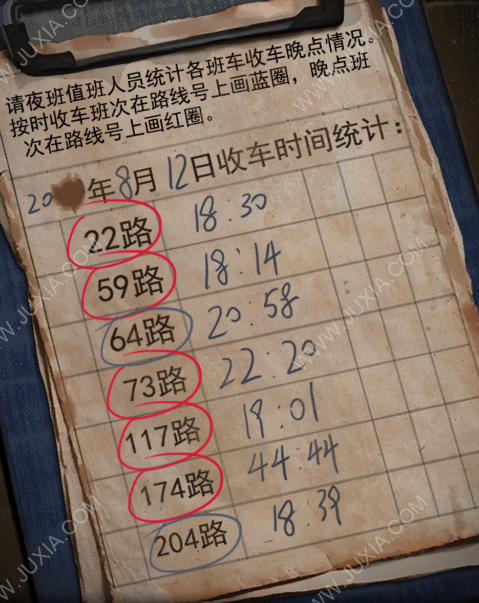 请夜班值班人员统计各班车收车晚点情况。
按时收车班次在路线号上画蓝圈，晚点班
次在路线号上画红圈。
20 年8月12日收车时间统计：
22路 18:30
59路 18:14
64路 20:58
73路 22:20
117路 19:01
174路 44:44
204路 18:39
WWW.JUXIA.COM